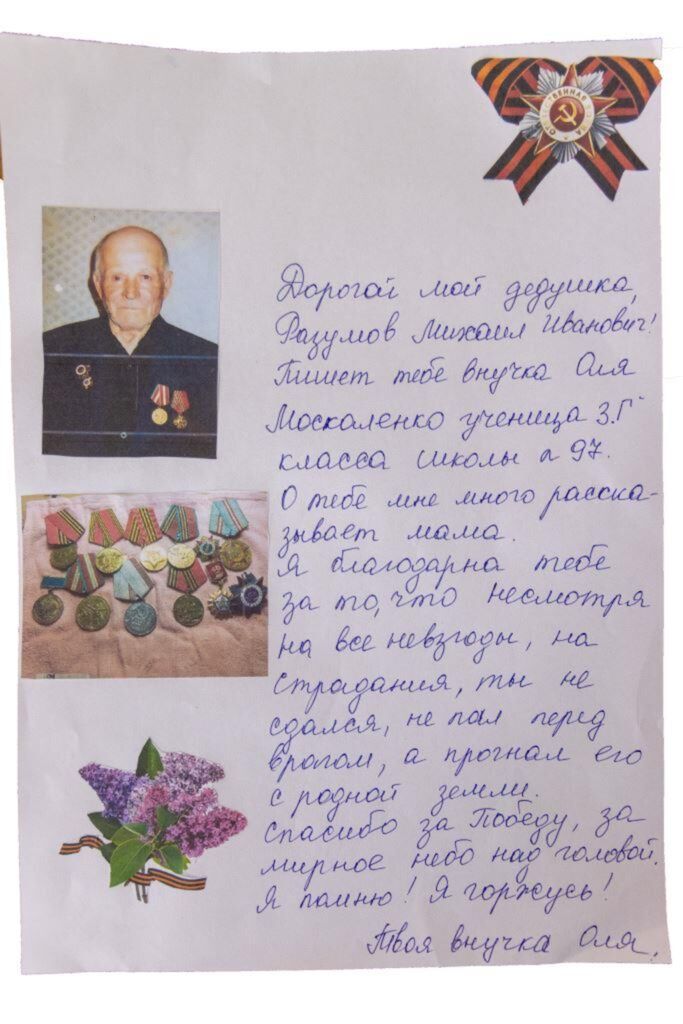 ОТЕЧЕСТВЕННАЯ ВОЙНА
Дорогой мой дедушка,
Разумов Михаил Иванович!
Пишет тебе внучка Оля
Москаленко ученица 3"Г"
класса школы № 97.
О тебе мне много расска-
зывает мама.
Я благодарна тебе
за то, что несмотря
на все невзгоды, на
страдания, ты не
сдался, не пал перед
врагом, а прогнал его
с родной земли.
Спасибо за Победу, за
мирное небо над головой.
Я помню! Я горжусь!
Твоя внучка Оля.